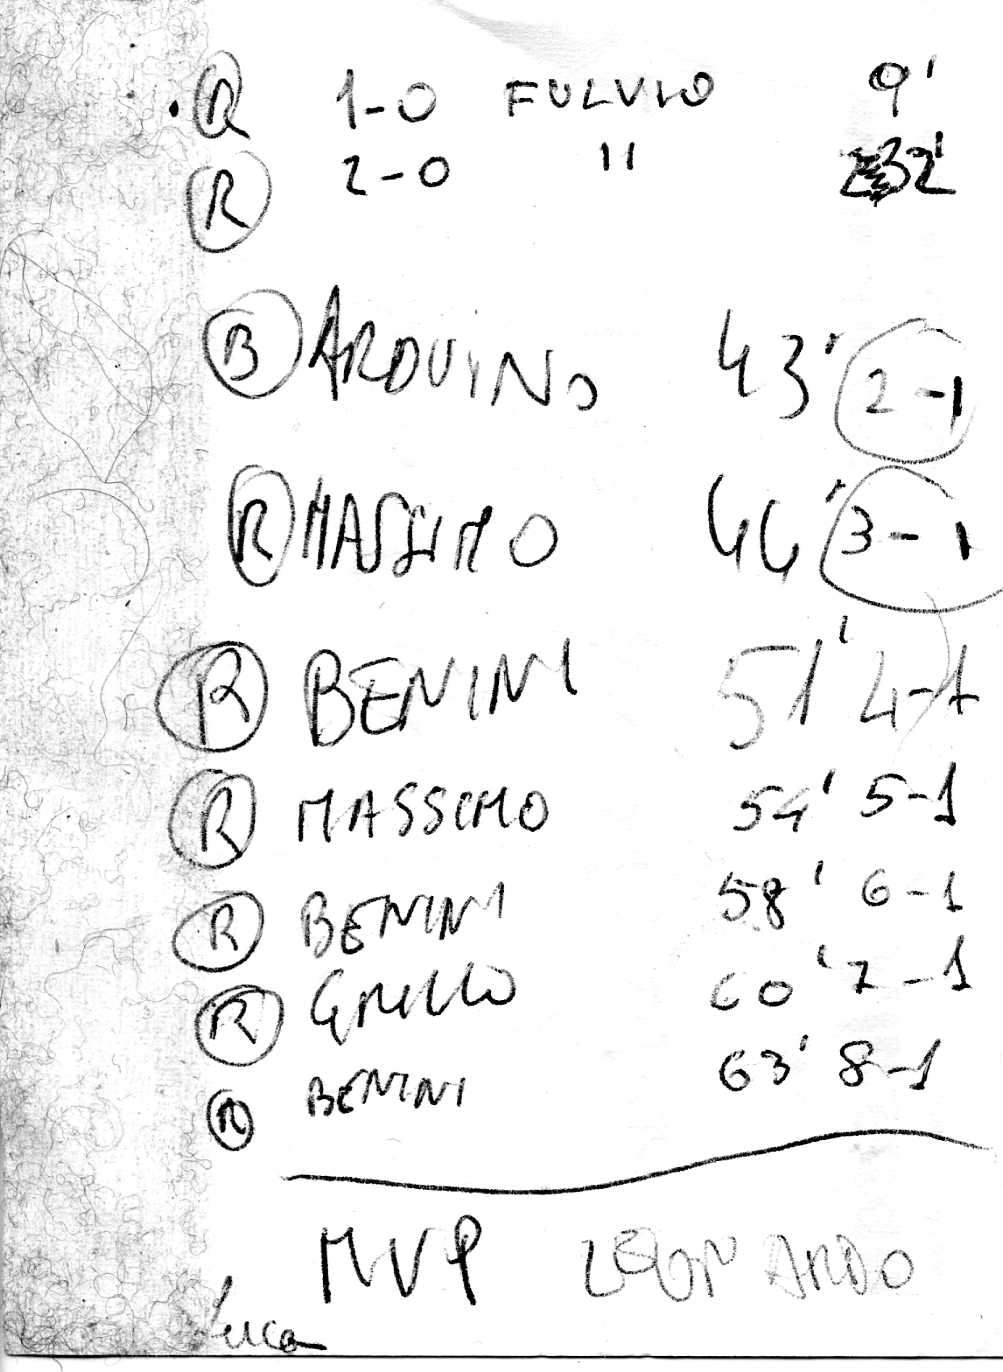 R 1-0 FULVIO 9'
R 2-0 " 32'
B ARDUINO 43' 2-1
R MASSIMO 44' 3-1
R BENINI 51' 4-1
R MASSIMO 54' 5-1
R BENINI 58' 6-1
R GRILLO 60' 7-1
R BENINI 63' 8-1
MVP LEONARDO
Luca